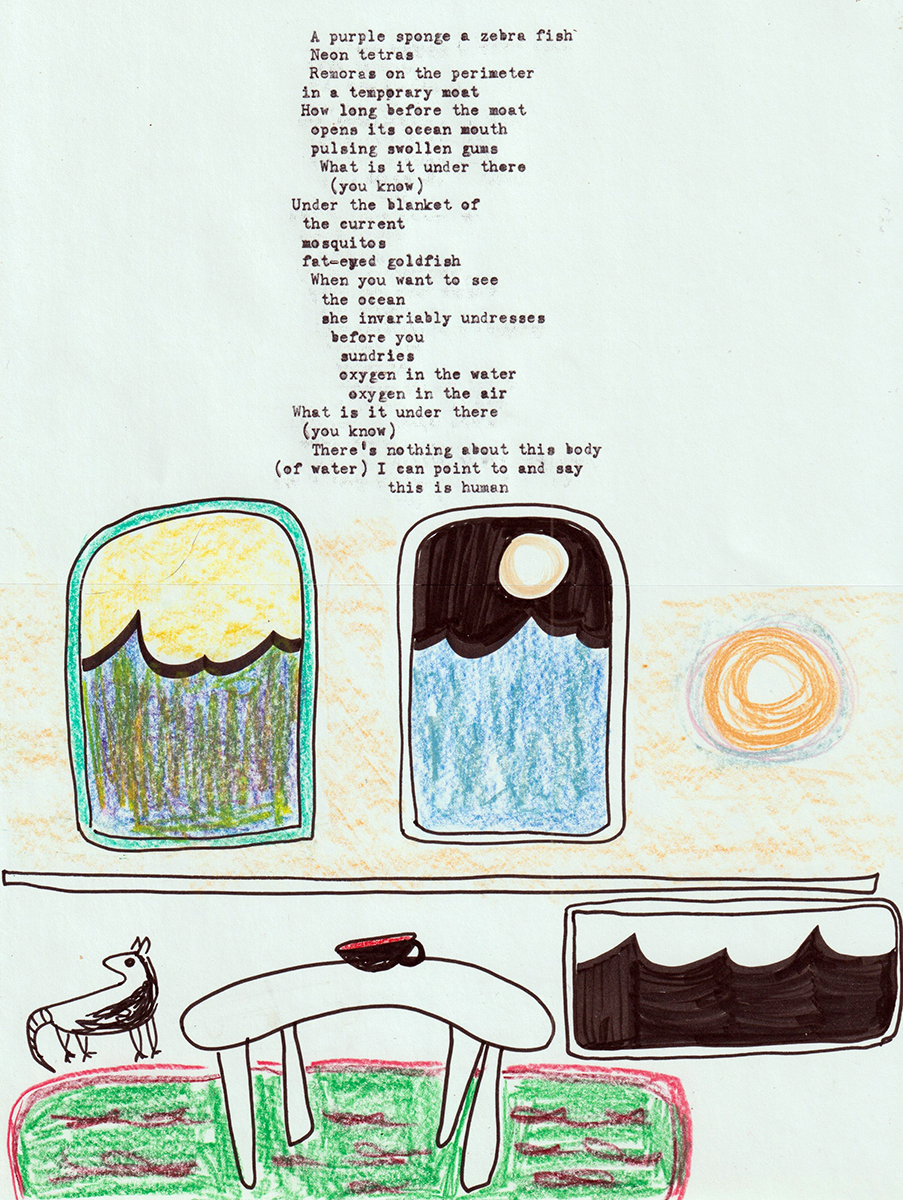 A purple sponge a zebra fish
Neon tetras
Remoras on the perimeter
in a temporary moat
How long before the moat
opens its ocean mouth
pulsing swollen gums
What is it under there
(you know)
Under the blanket of
the current
mosquitos
fat-eyed goldfish
When you want to see
the ocean
she invariably undresses
before you
sundries
oxygen in the water
oxygen in the air
What is it under there
(you know)
There's nothing about this body
(of water) I can point to and say
this is human